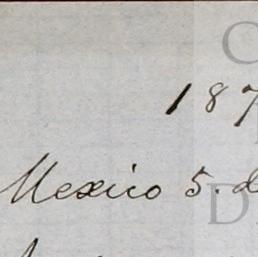 187
Mexico 5. d